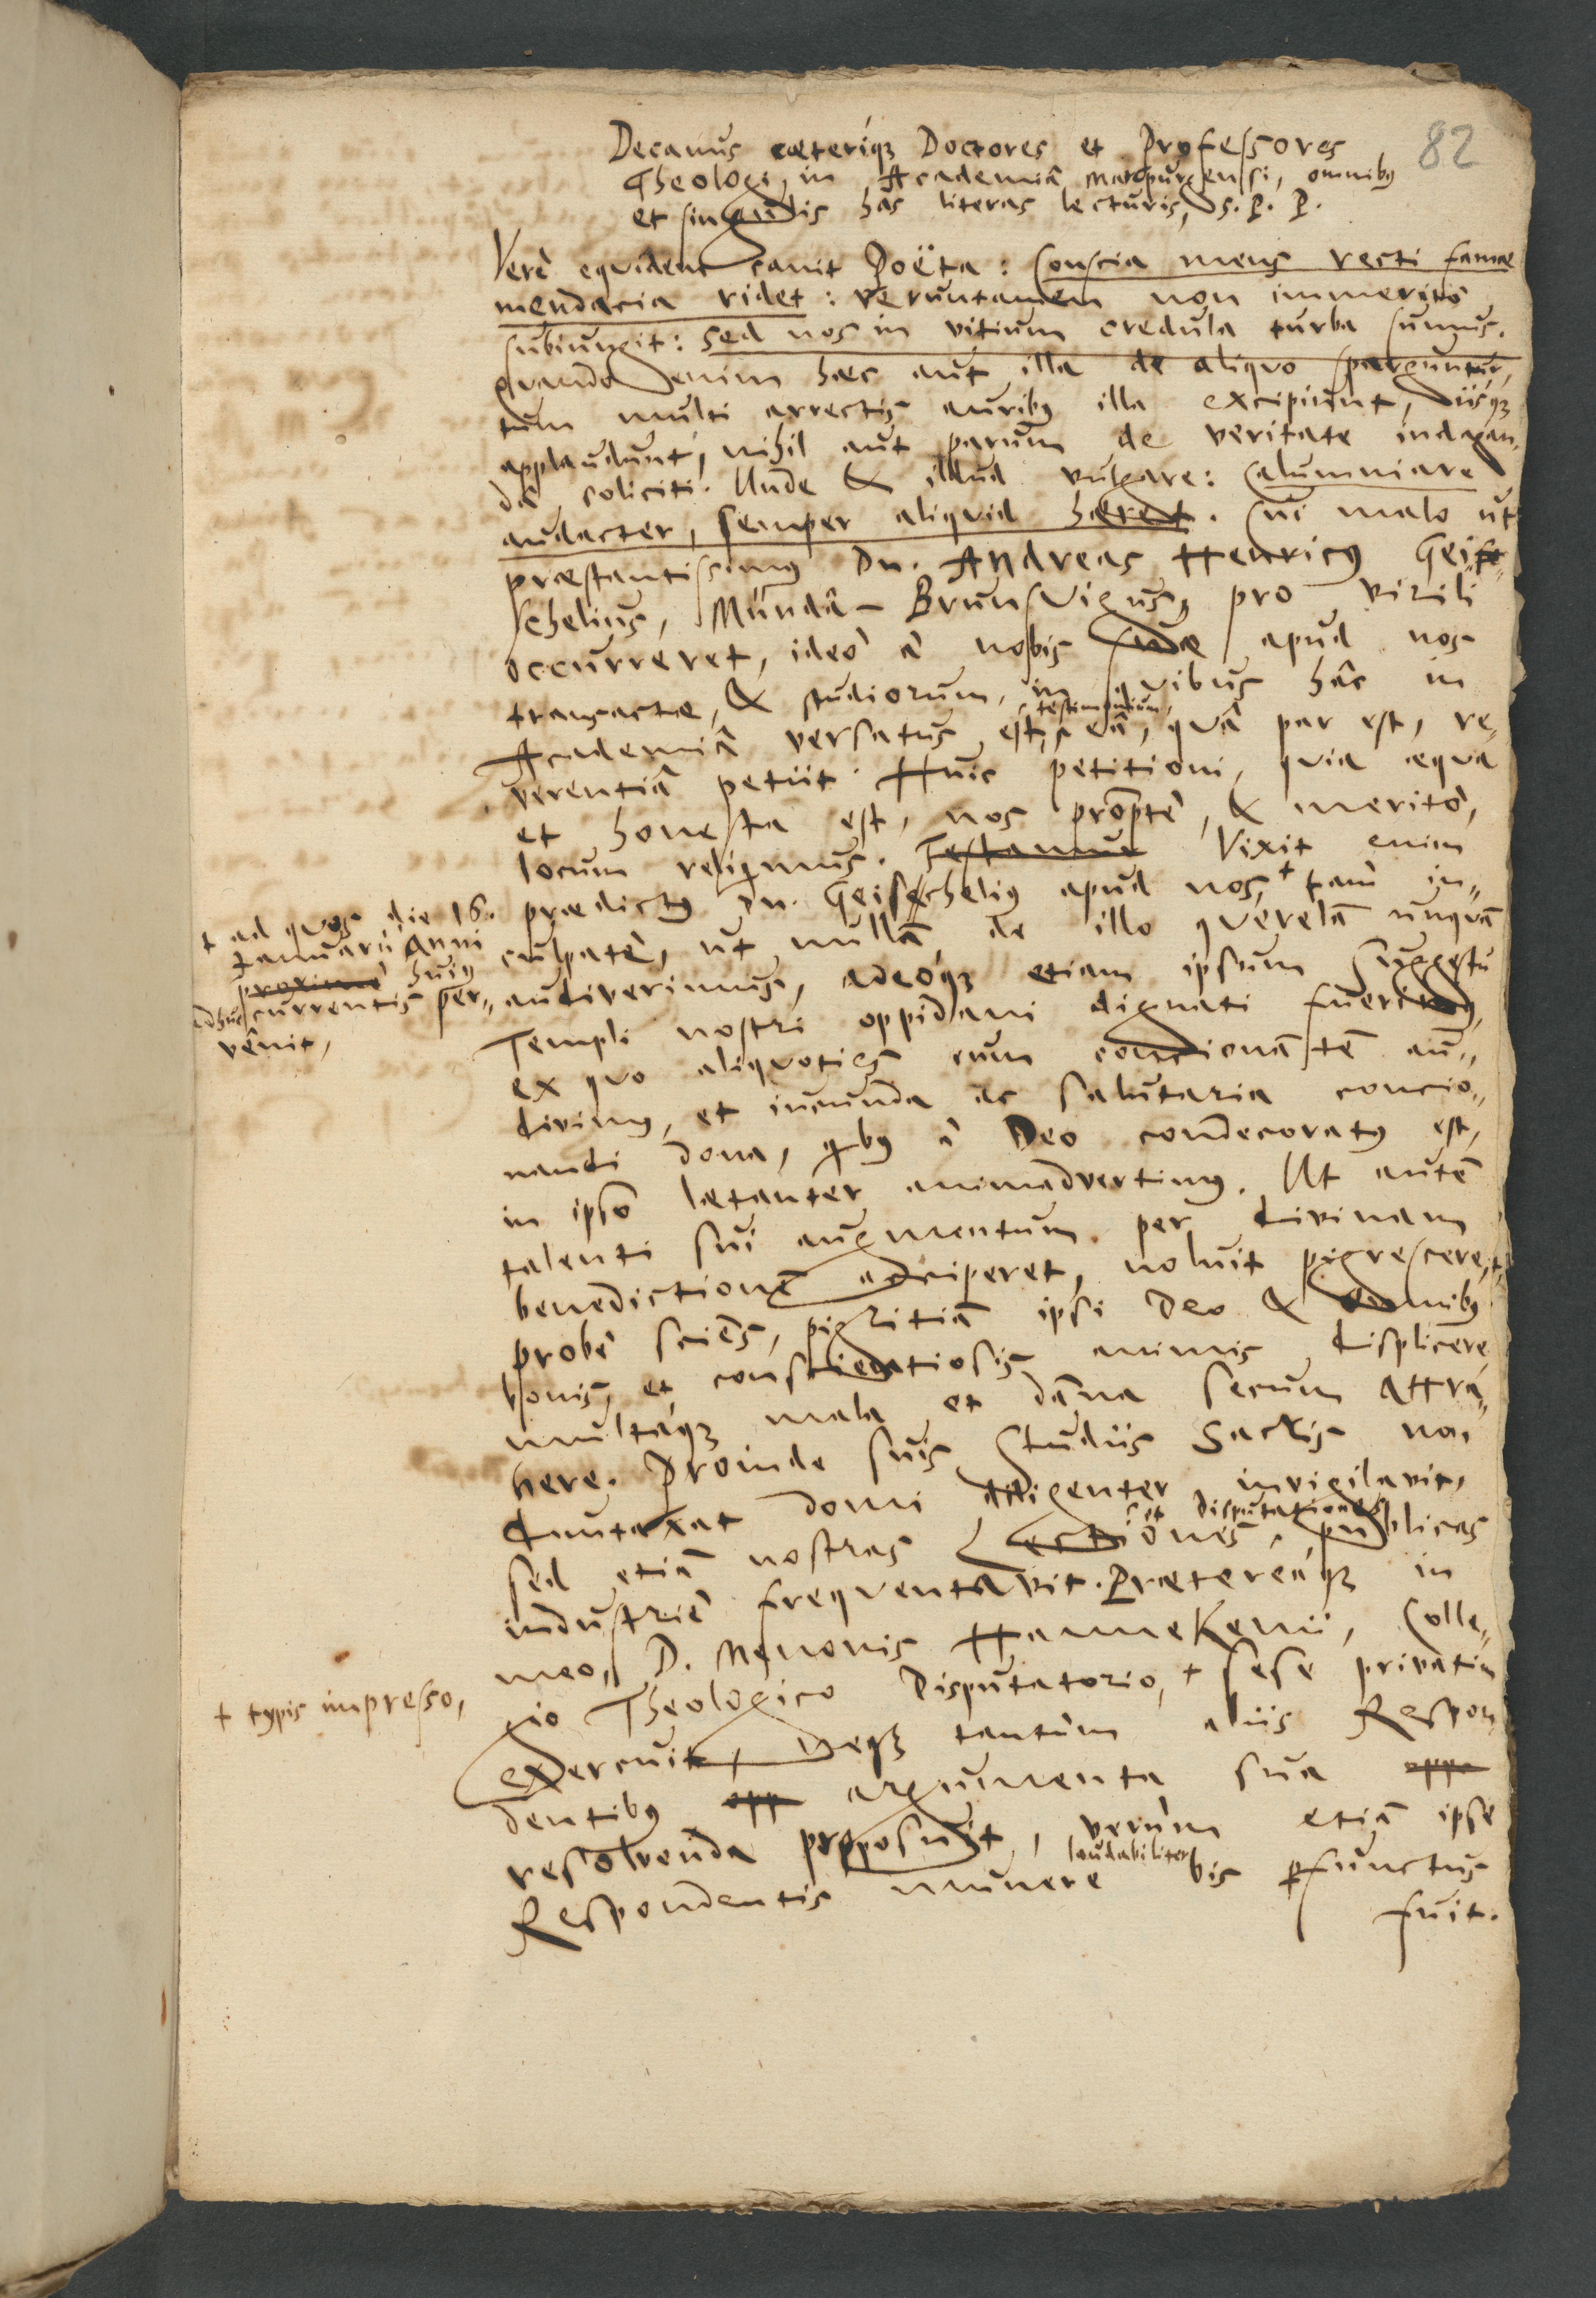 82
Decanus cæteriq́ꝫ Doctores et Professores
Theologi in Academiâ Marpurgensi, omnibꝰ
et singulis hâs literas lecturis, S. P. P.
Verè equidem canit Poëta: Conscia mens recti famæ
mendacia ridet: veruntamen non immeritò
subiungit: sed nos in vitium credula turba sumus.
Quando enim hæc aut illa de aliquo sparguntur,
tum multi arrectis auribꝰ illa excipiunt, iisq́ꝫ
applaudunt, nihil aut parum de veritate indagan„
dâ soliciti. Unde & illud vulgare: Calumniare
audacter, semper aliquid hæret. Cui malo ut
præstantissimꝰ Dn. Andreas Henricꝰ Geisc„
schelius, Mundâ-Brunsvigus, pro virili
occurreret, ideò à nobis suæ apud nos
transactæ, & studiorum, in quibus hâc in
Academiâ versatus est, testimonium, eâ, quâ par est, re„
verentiâ petiit. Huic petitioni, quia æqua
et honesta est, nos promptè, & meritò,
locum relinquimus. Testamur Vixit enim
prædictꝰ Dn. Geisschelius apud nos, † tam in„
culpatè, ut nullā de illo querelā unquā
audiverimus, adeóqꝫ etiam ipsum suggestu
Templi nostri oppidani dignati fuerimꝰ,
ex quo aliquoties eum concionantē au„
divimꝰ, et iucunda ac salutaria concio„
nandi dona, qbꝰ à Deo condecoratꝰ est,
in ipso lætanter animadvertimꝰ. Ut autē
talenti sui augmentum per divinam
benedictionē acciperet, noluit pigrescere,
probè sciens, pigritiā ipsi Deo & omnibꝰ
bonis, et conscientiosis animis displicere
multáqꝫ mala et dāna secum attra„
here. Proinde suis Studiis Sacris non
duntaxat domi diligenter invigilavit,
sed etiā nostras Lectiones, et Disputationes publicas
industriè frequentavit. Prætereáqꝫ in
meo, D. Menonis Hannekenii, Colle„
gio Theologico Disputatorio, † sese privatim
exercuit, neqꝫ tantùm aliis Respon
dentibꝰ opp argumenta sua oppo
resolvenda proposuit, verùm etiā ipse
Respondentis munere laudabiliter bis pfunctus
fuit.
† ad quos die 16.
Januarii Anni
proximè huiꝰ
adhuc currentis per„
vênit,
† typis impresso,